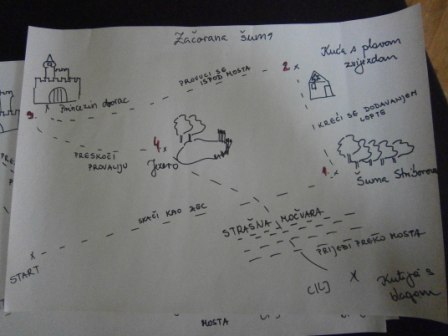 Začarana šuma
2 x
Kuća s plavom
zvijezdom
PROVUCI SE
ISPOD MOSTA
x Princezin dvorac
3
I KREĆI SE DODAVANJEM
LOPTE
4 x
PRESKOČI
PROVALIJU
Jezero
1 x
Šuma Striborova
SKAČI KAO ZEC
STRAŠNA MOČVARA
x
START
PRIJEĐI PREKO MOSTA
CILJ
x
Kutija s
blagom
MOSTA